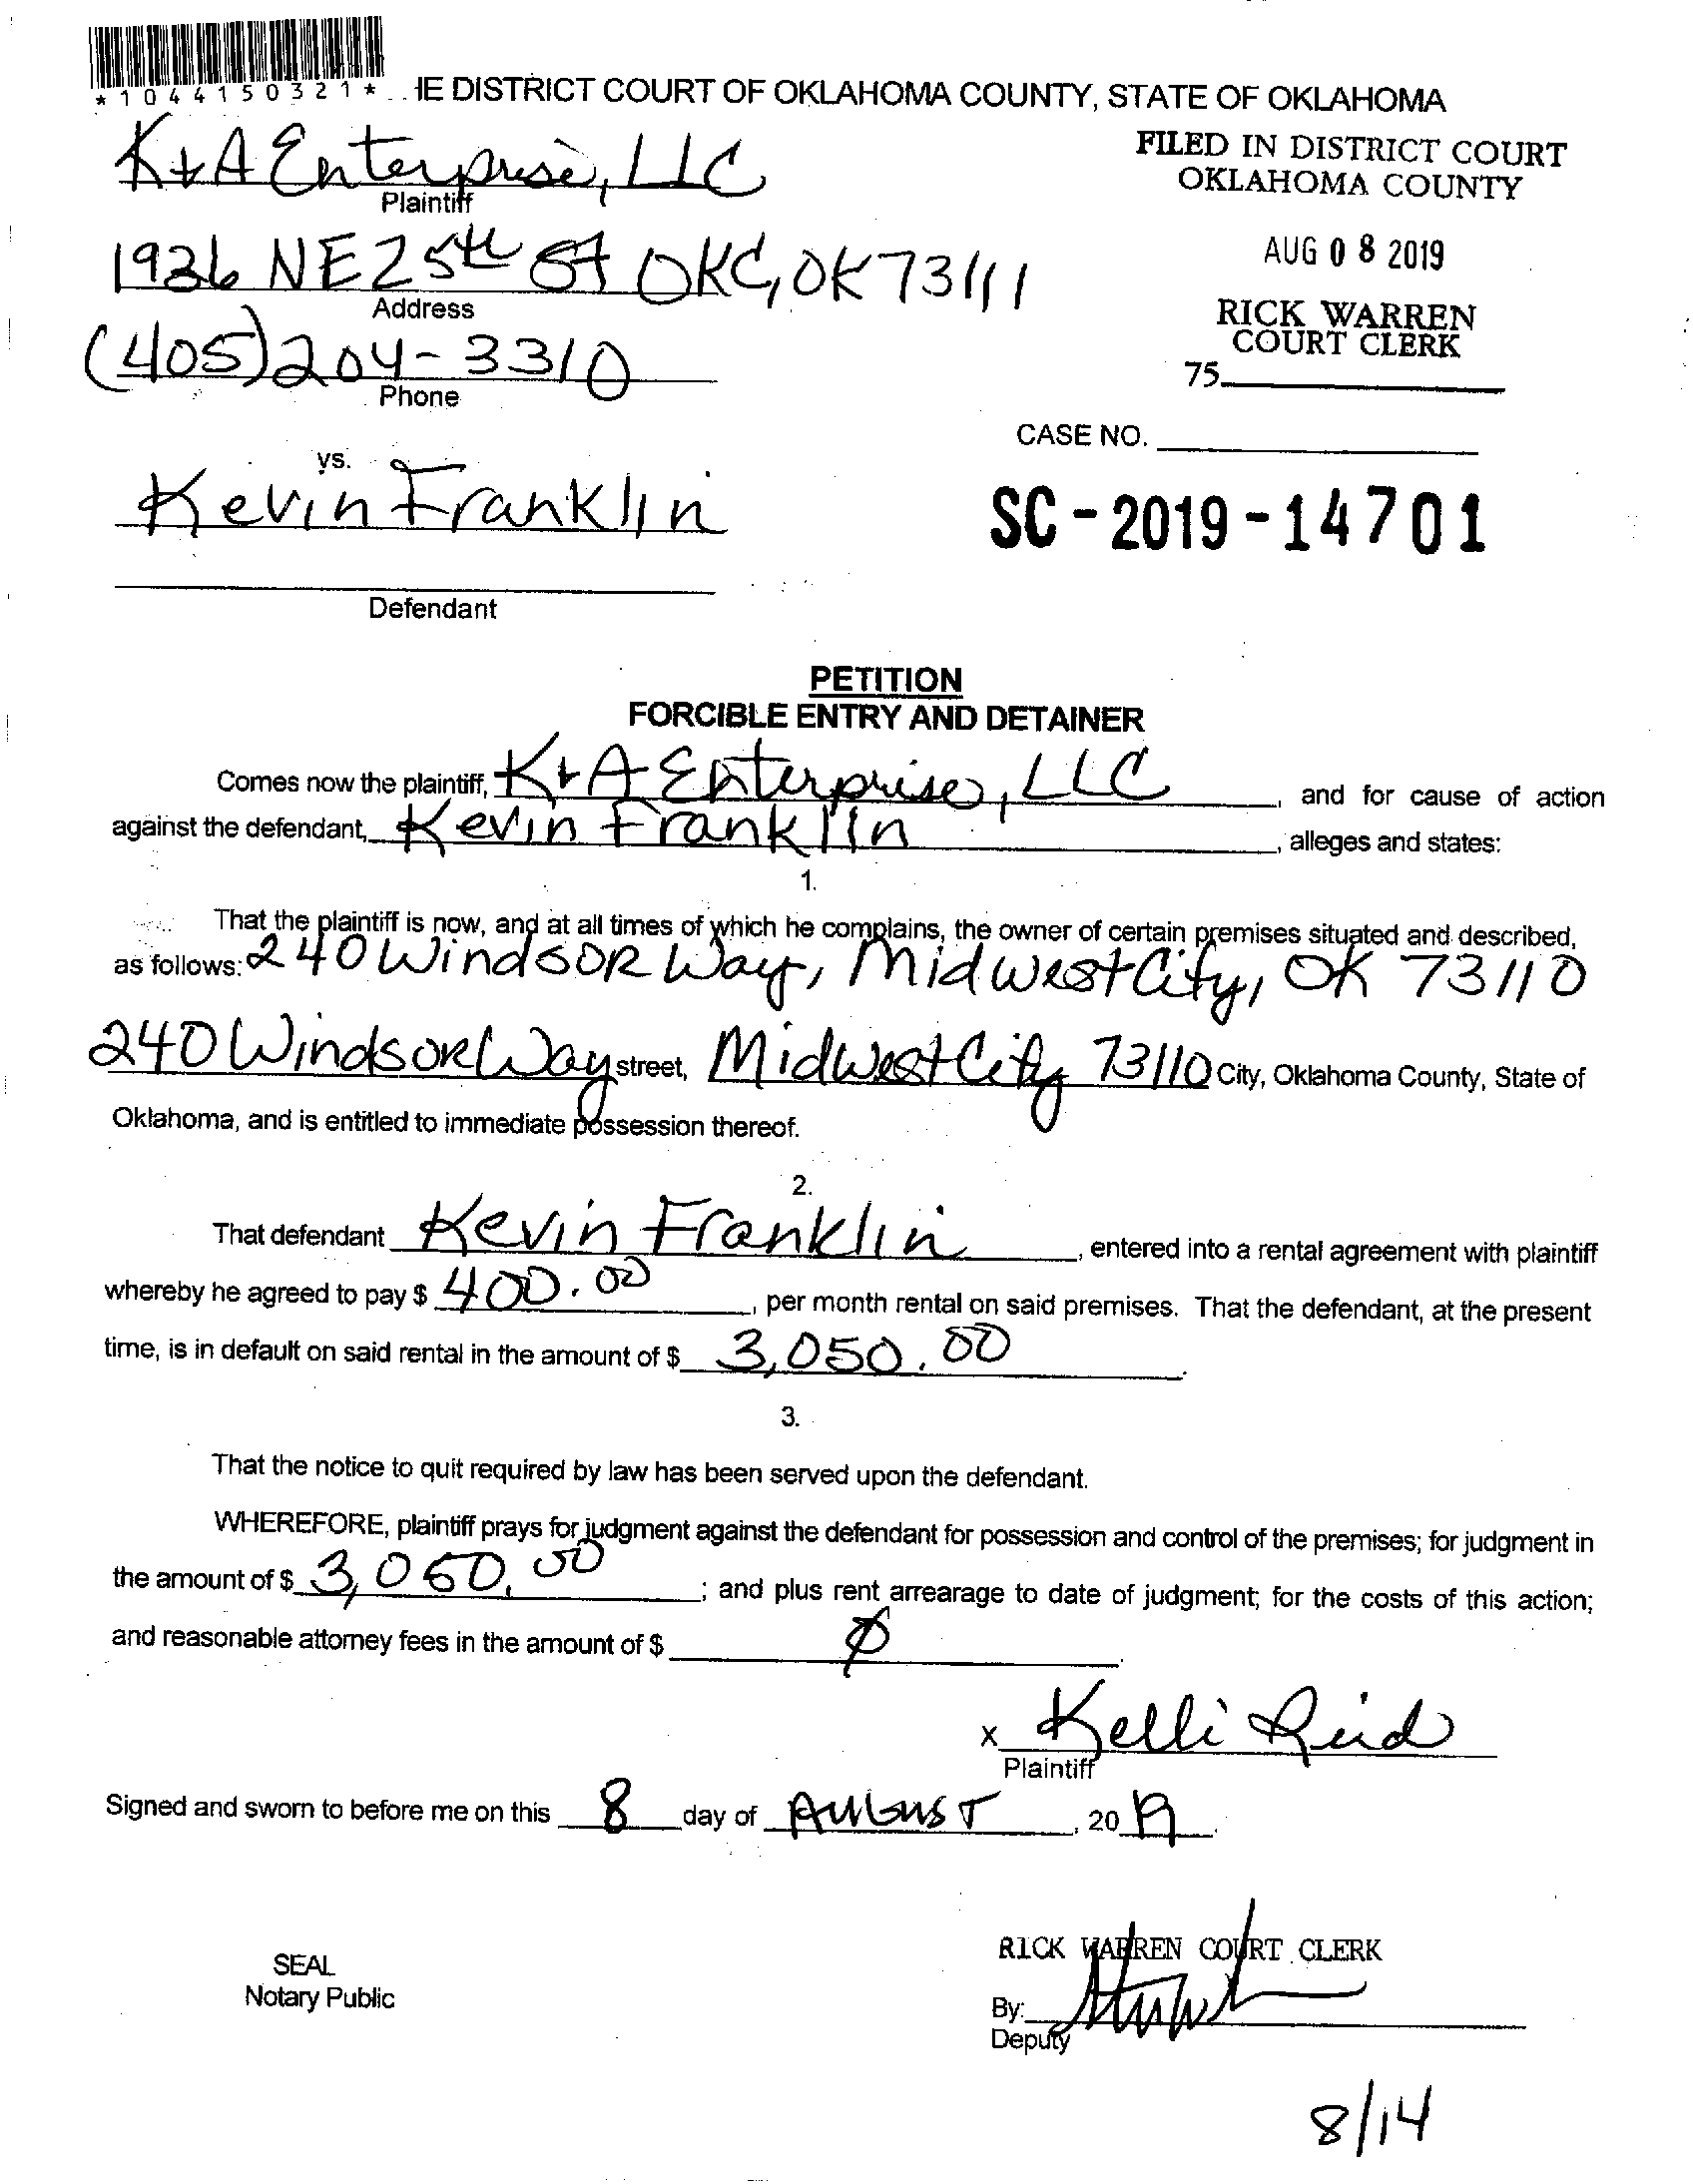 *1044150321*
HE DISTRICT COURT OF OKLAHOMA COUNTY, STATE OF OKLAHOMA
K+A Enterprise, LLC
Plaintiff
FILED IN DISTRICT COURT
OKLAHOMA COUNTY
1936 NE 25th St OKC, OK 73111
Address
AUG 08 2019
(405)204-3310
Phone
RICK WARREN
COURT CLERK
75
CASE NO.
vs.
Kevin Franklin
SC-2019-14701
Defendant
PETITION
FORCIBLE ENTRY AND DETAINER
Comes now the plaintiff, K+A Enterprise, LLC, and for cause of action
against the defendant, Kevin Franklin, alleges and states:
1.
That the plaintiff is now, and at all times of which he complains, the owner of certain premises situated and described,
as follows: 240 Windsor Way, Midwest City, OK 73110
240 Windsor Way street, Midwest City 73110 City, Oklahoma County, State of
Oklahoma, and is entitled to immediate possession thereof.
2.
That defendant Kevin Franklin, entered into a rental agreement with plaintiff
whereby he agreed to pay $ 400.00, per month rental on said premises. That the defendant, at the present
time, is in default on said rental in the amount of $ 3,050.00.
3.
That the notice to quit required by law has been served upon the defendant.
WHEREFORE, plaintiff prays for judgment against the defendant for possession and control of the premises; for judgment in
the amount of $ 3,050.00; and plus rent arrearage to date of judgment; for the costs of this action;
and reasonable attorney fees in the amount of $ Ø.
X Kelli Reid
Plaintiff
Signed and sworn to before me on this 8 day of AUGUST, 2019.
RICK WARREN COURT CLERK
SEAL
Notary Public
By:
Deputy
8/14